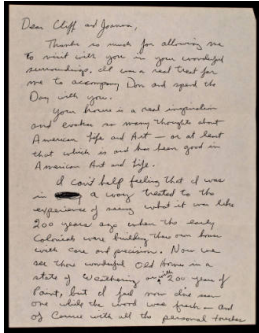 Dear Cliff and Joanna,
Thanks so much for allowing me
to visit with you in your wonderful
surroundings. It was a real treat for
me to accompany Don and spend the
Day with you.
Your home is a real inspiration
and evokes so many thoughts about
American life and Art — or at least
that which is and has been good in
American Art and life.
I can't help feeling that I was
in a way treated to the
experience of seeing what it was like
200 years ago when the early
Colonists were building their own homes
with care and precision. Now we
see those wonderful Old homes in a
state of Weathering with 200 years of
Paint, but I feel now I've seen
one while the wood was fresh and
of Course with all the personal touches